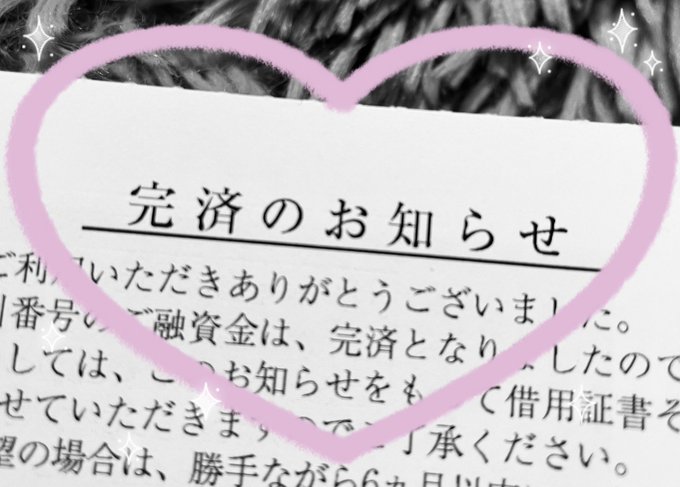 完済のお知らせ
ご利用いただきありがとうございました。
番号のご融資金は、完済となりましたので
しては、このお知らせをも て借用証書そ
せていただきますのでご了承ください。
望の場合は、勝手ながら6ヵ月以